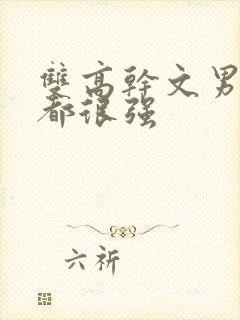 雙高幹文男
都很强
六祈